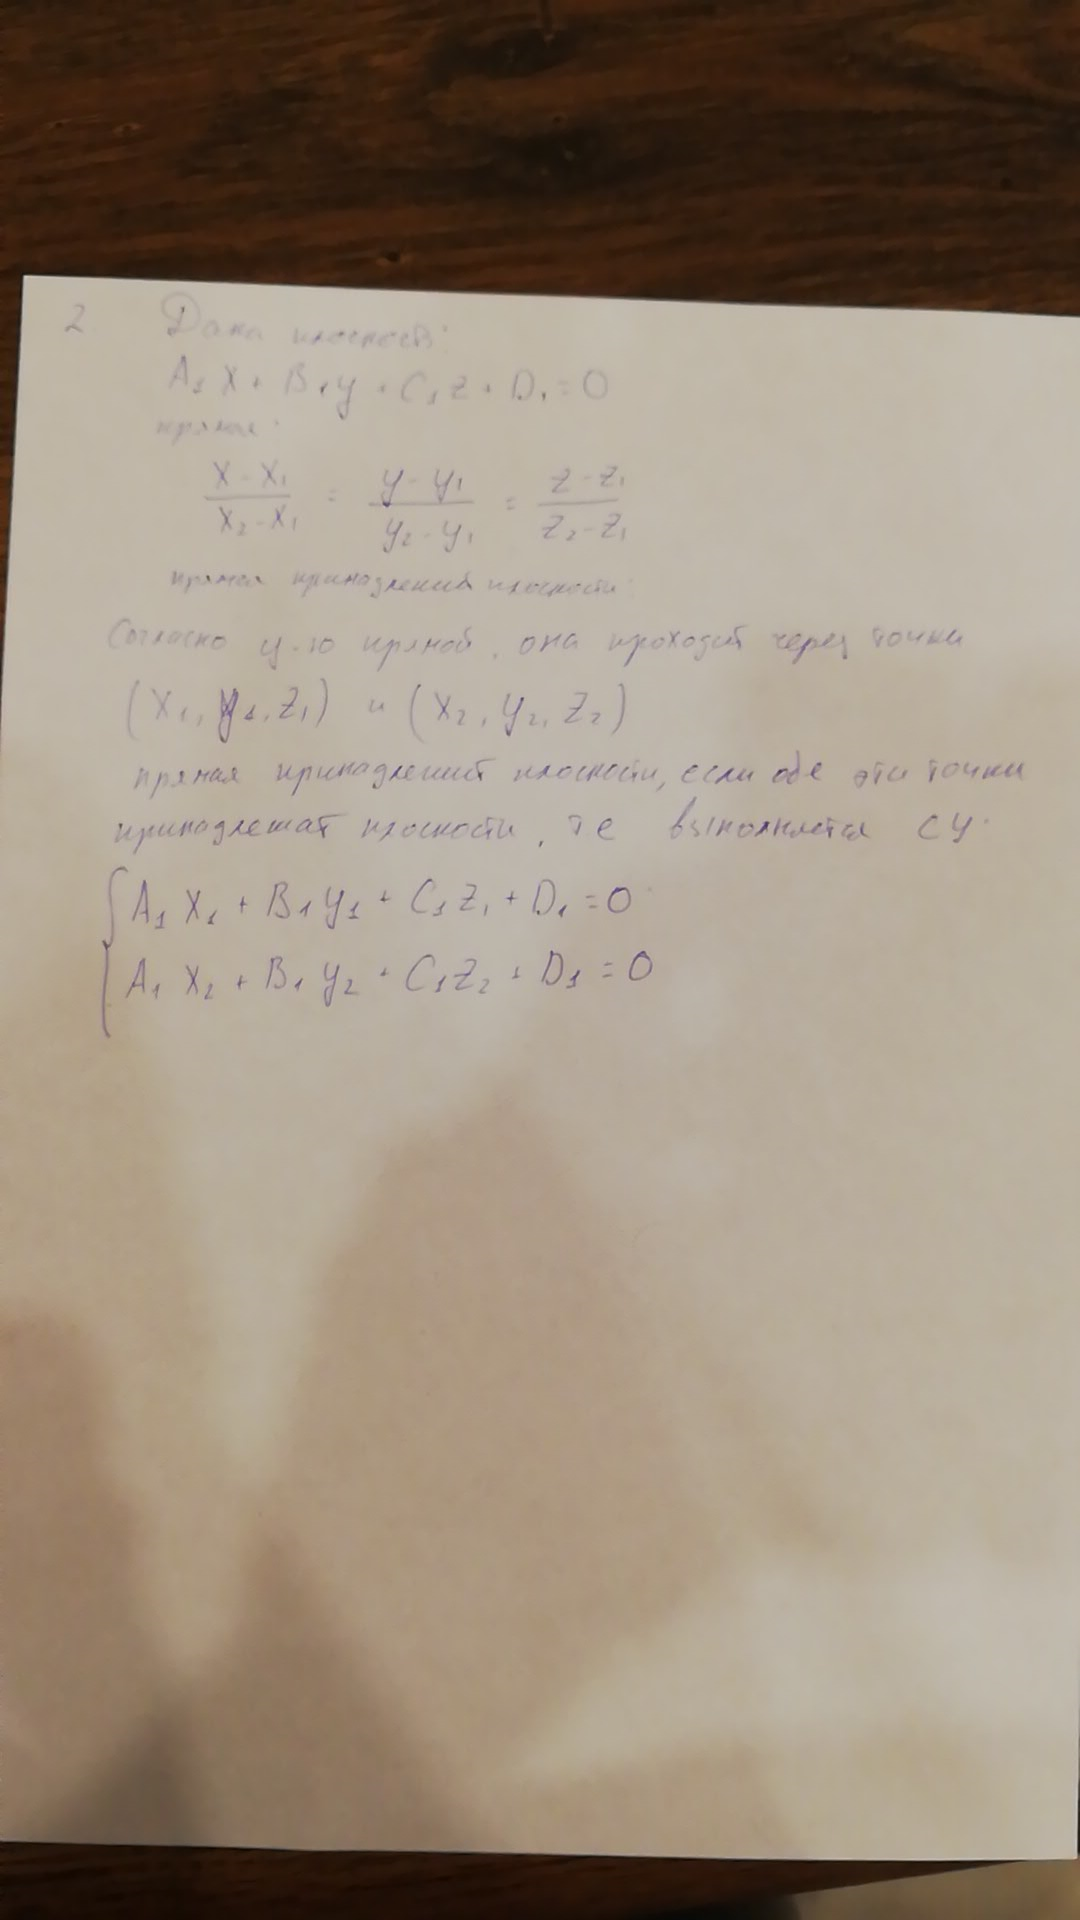 2 Дана плоскость:
A₁x + B₁y + C₁z + D₁ = 0
прямая:
(x - x₁)/(x₂ - x₁) = (y - y₁)/(y₂ - y₁) = (z - z₁)/(z₂ - z₁)
прямая принадлежит плоскости:
Согласно у-ю прямой, она проходит через точки
(x₁, y₁, z₁) и (x₂, y₂, z₂)
прямая принадлежит плоскости, если обе эти точки
принадлежат плоскости, те выполняется СУ:
{ A₁x₁ + B₁y₁ + C₁z₁ + D₁ = 0
A₁x₂ + B₁y₂ + C₁z₂ + D₁ = 0